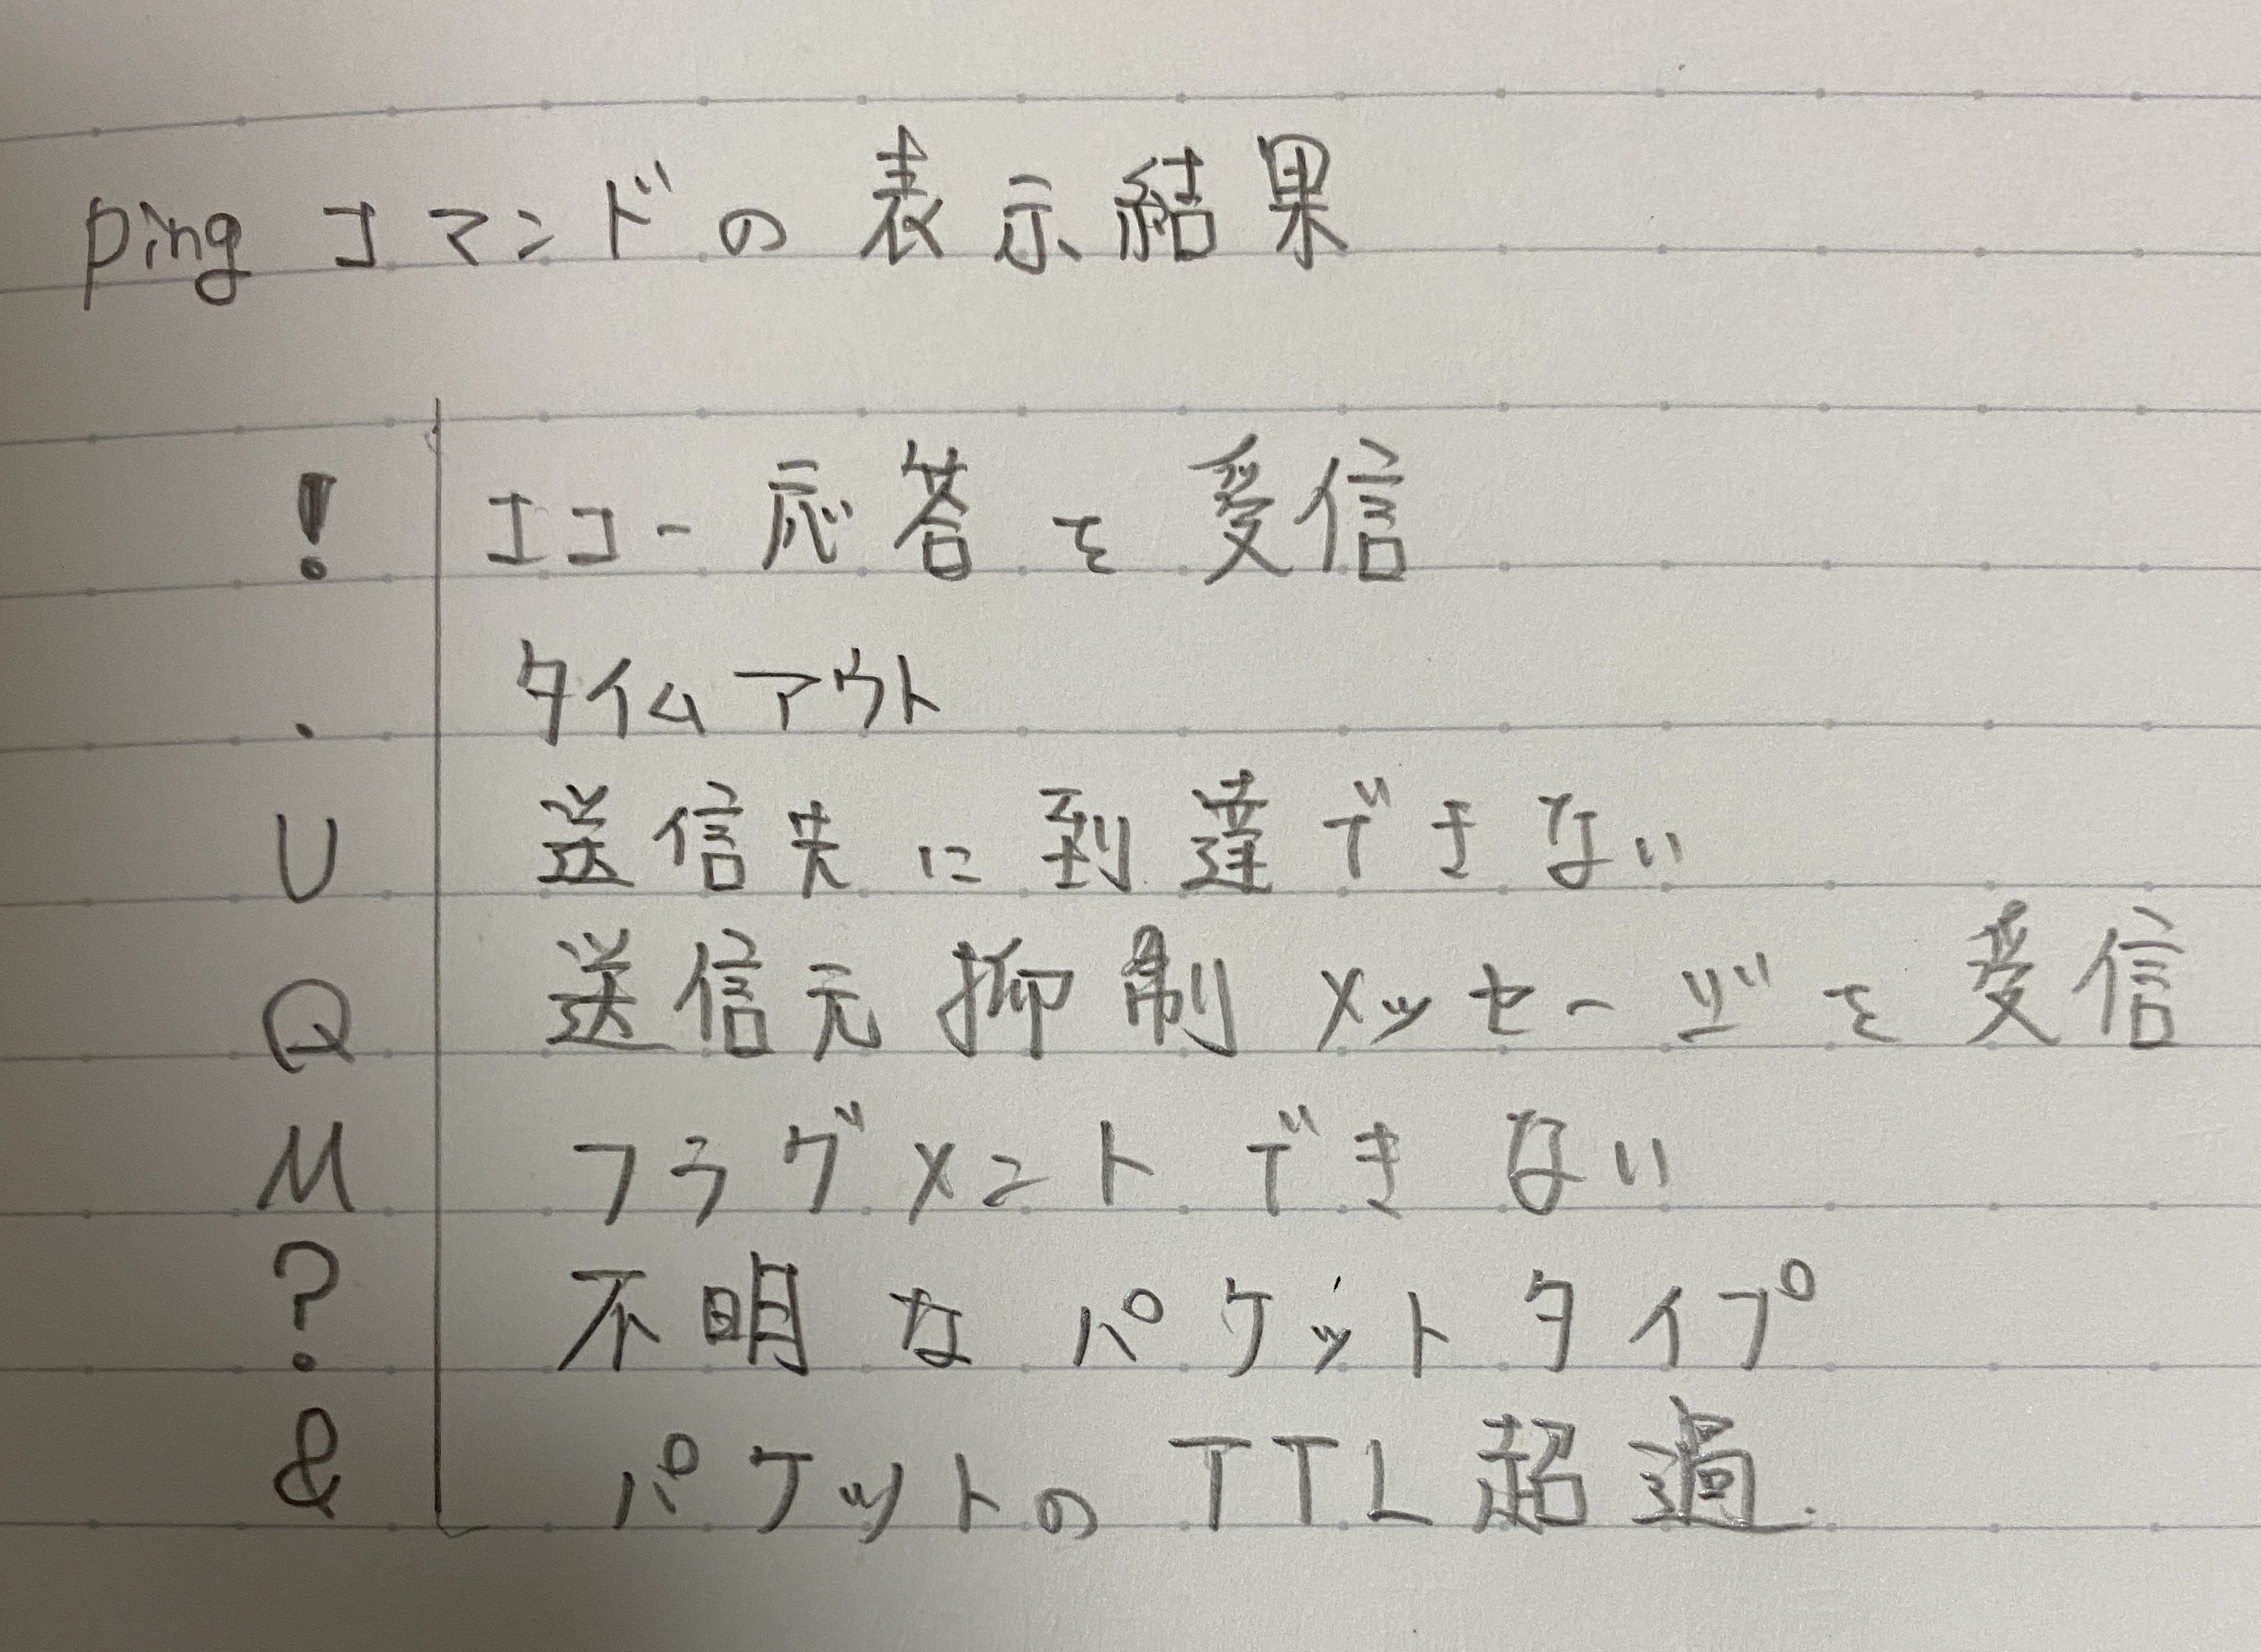 pingコマンドの表示結果
! エコー応答を受信
. タイムアウト
U 送信先に到達できない
Q 送信元抑制メッセージを受信
M フラグメントできない
? 不明なパケットタイプ
& パケットのTTL超過.